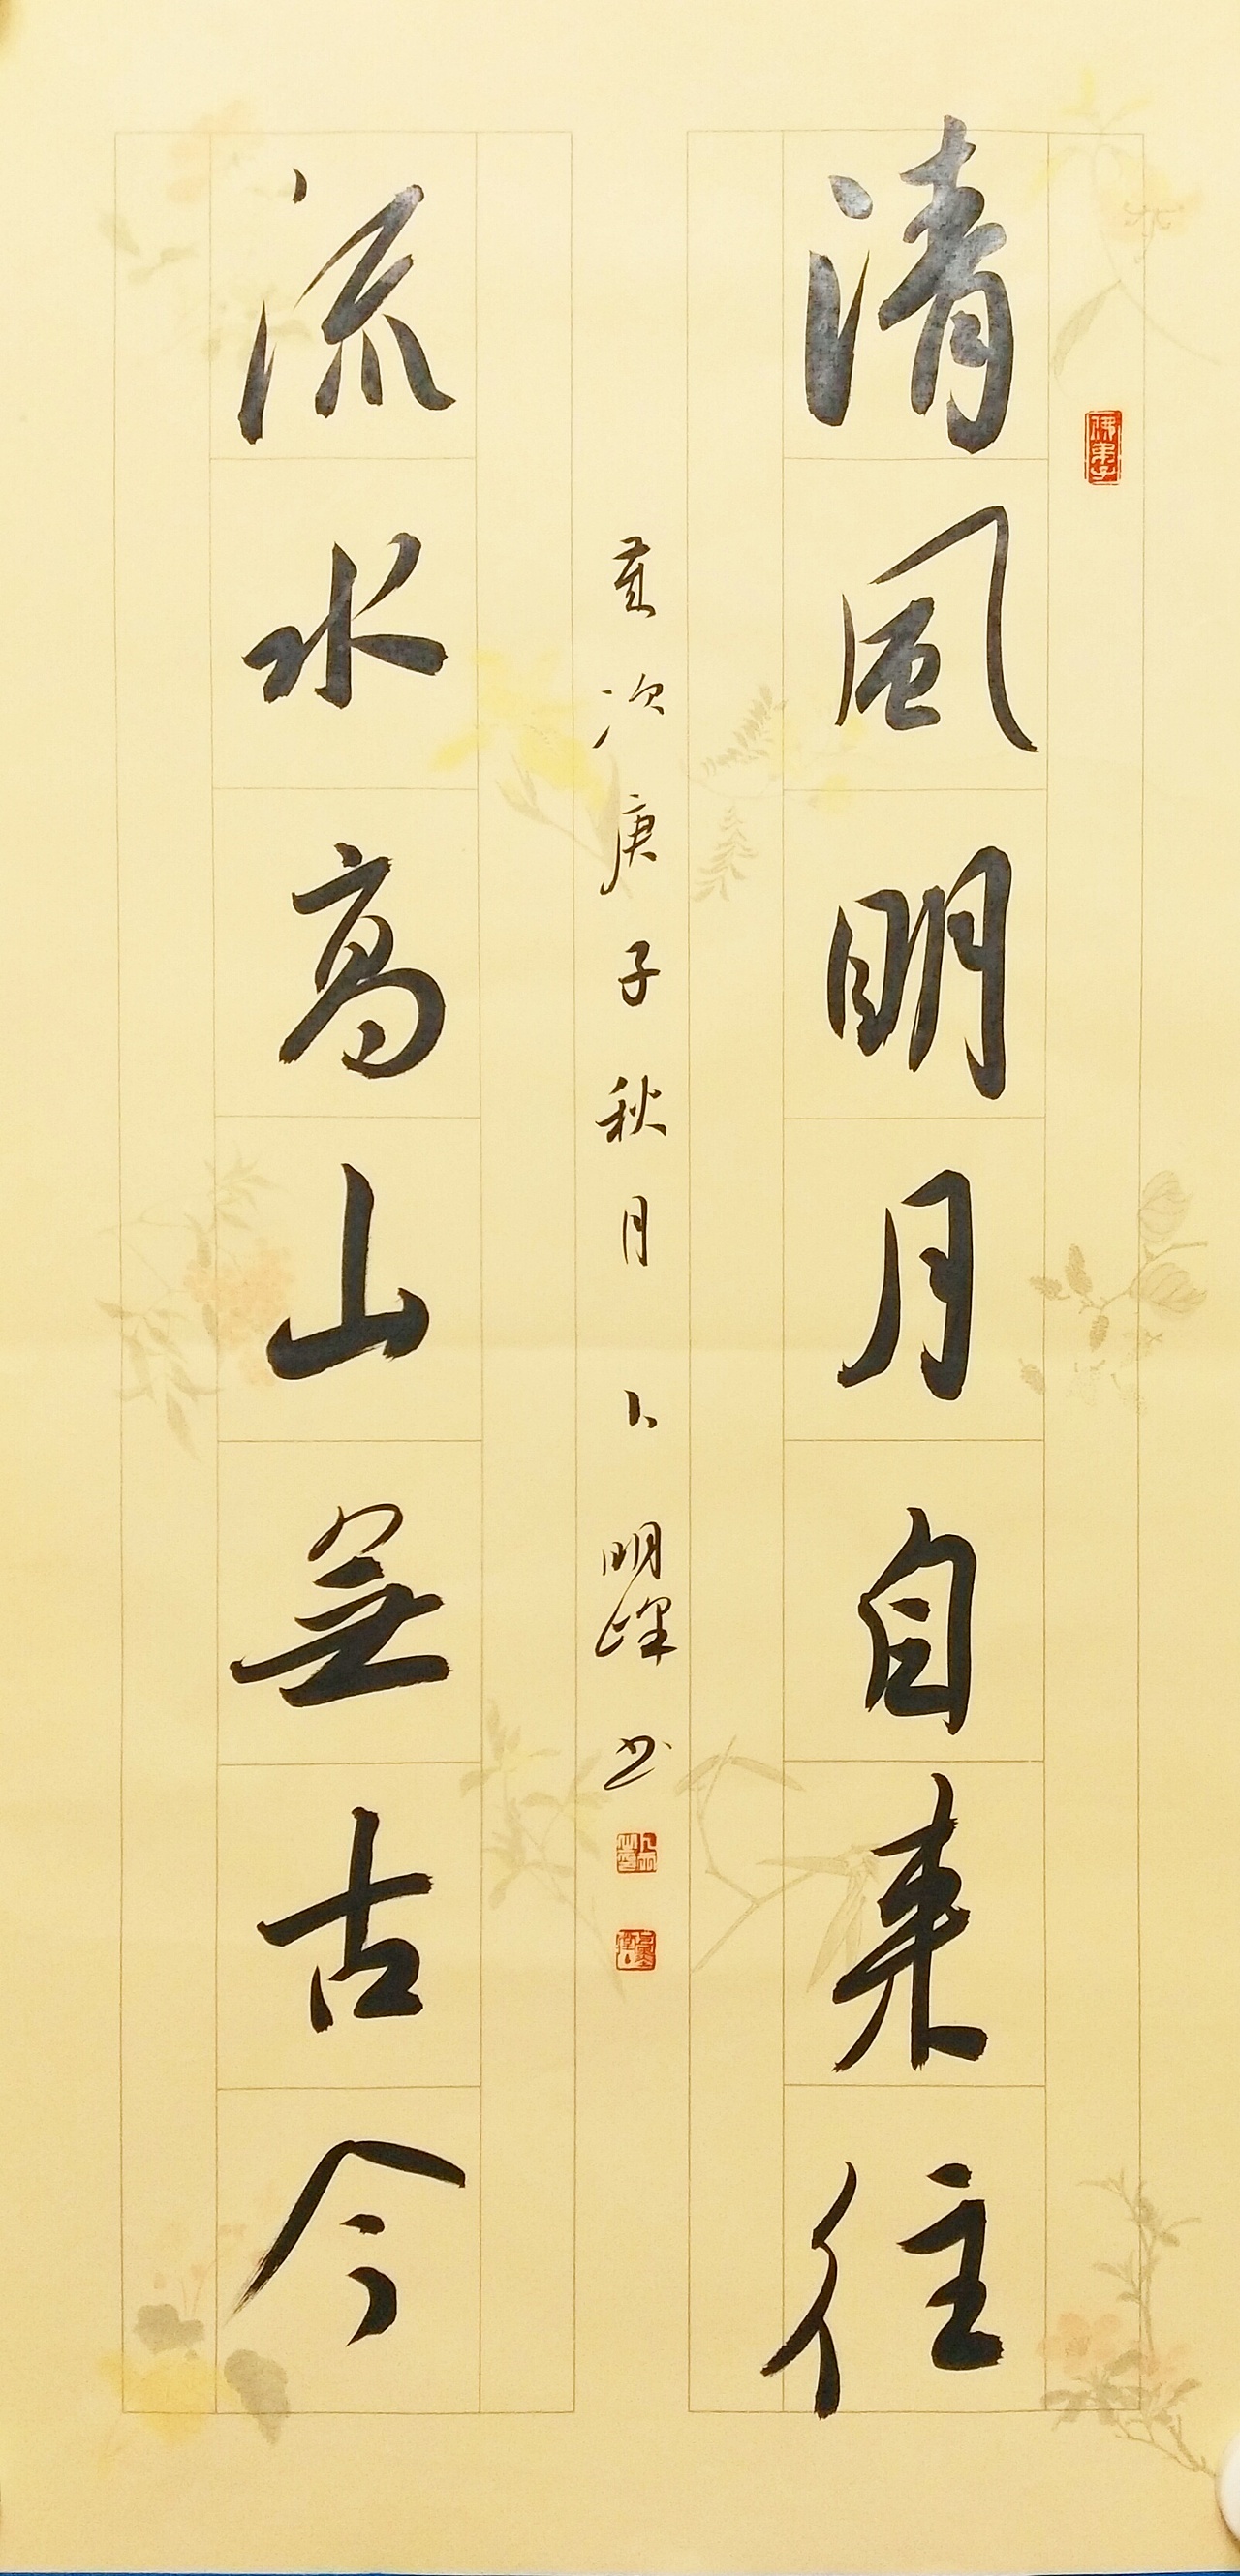 清風明月自來往
歲次庚子秋月 卜明峰书
流水高山無古今